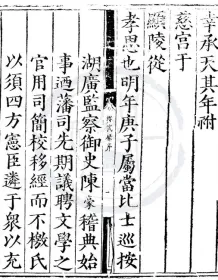 幸承天其年祔
慈宫于
顯陵從
孝思也明年庚子屬當比士巡按
湖廣監察御史陳豪稽典始
事迺藩司先期議聘文學之
官用司簡校移經而不檄氏
以須四方憲臣遴于衆以充